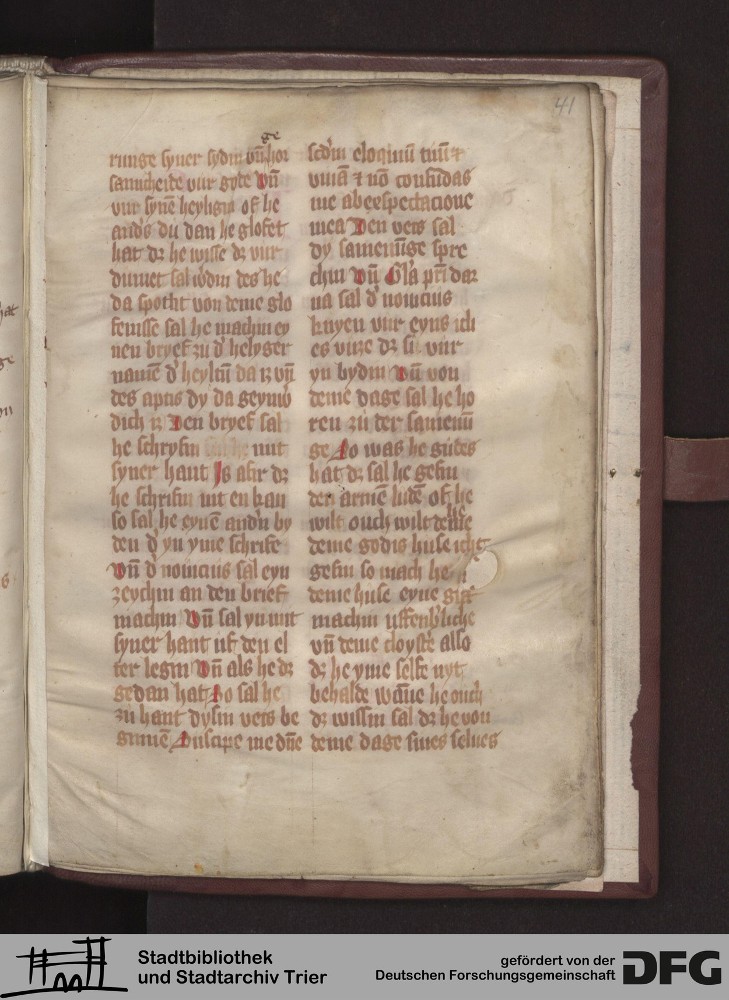 41
ge
runge syner sydin vn̄ hor
samicheide vur gote Vn̄
vur synē heyligin of he
and's du dan he glofet
hat dz he wisse dz vur
dumet sal w'din des he
da spotht von deme glo
fenisse sal he machin ey
nen bryef zu d' helyger
namē d' heyltū da iz vn̄
des aptis dy da geynw'
dich iz Den bryef sal
he schryfin mit
syner hant Is afir dz
he schrifin nit en kan
so sal he eynē and'n by
den d' yn yme schrife
Vn̄ d' nouicius sal eyn
zeychin an den brief
machin Vn̄ sal yn mit
syner hant uf den el
ter legin Vn̄ als he dz
gedan hat So sal he
zu hant dysin vers be
ginnē Suscipe me dn̄e
scd'm eloquiū tuū ⁊
viuā ⁊ nō confūdas
me ab expectacione
mea Den vers sal
dy samenūge spre
chin Vn̄ Gl'a pr̄i dar
na sal d' nouicius
knyen vur eyns icli
es vuze dz si vur
yn bydin Vn̄ von
deme dage sal he ho
ren zu der samenū
ge So was he gudes
hat dz sal he gefin
den armē ludē of he
wilt ouch wilt
deme godis huse icht
gefin so mach he
deme huse eyne gift
machin uffenb'liche
vn̄ deme cloyst'e also
dz he yme selfe nyt
behalde wān̄e he ouch
dz wissin sal dz he von
deme dage sines selues
Stadtbibliothek
und Stadtarchiv Trier
gefördert von der
Deutschen Forschungsgemeinschaft
DFG